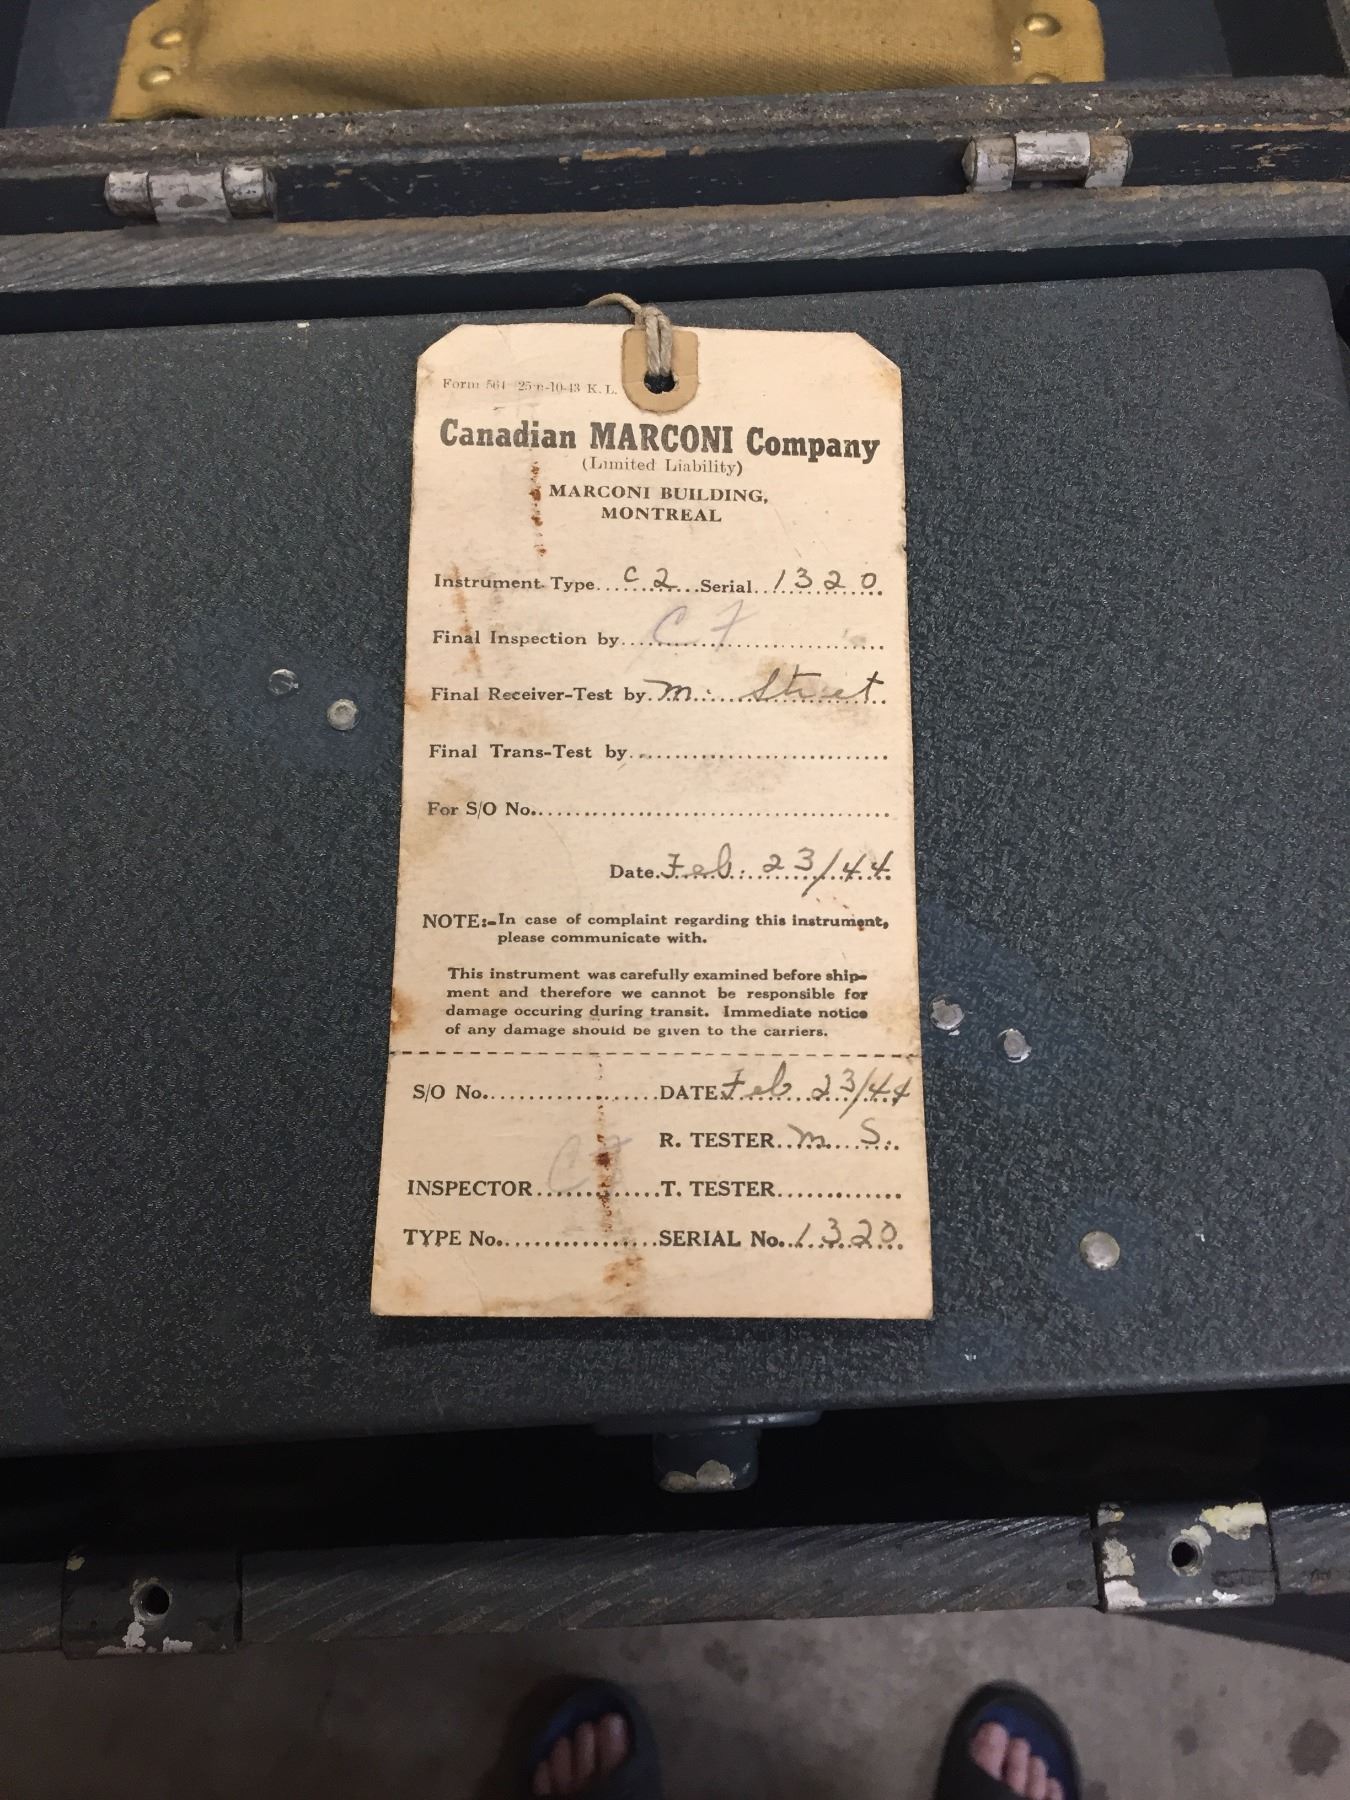 Form 564—25m-10-43 K. L.
Canadian MARCONI Company
(Limited Liability)
MARCONI BUILDING,
MONTREAL
Instrument Type... C2 ...Serial... 1320
Final Inspection by... C F
Final Receiver-Test by... M. Street
Final Trans-Test by...
For S/O No...
Date. Feb. 23/44
NOTE:-In case of complaint regarding this instrument,
please communicate with.
This instrument was carefully examined before ship-
ment and therefore we cannot be responsible for
damage occuring during transit. Immediate notice
of any damage should be given to the carriers.
S/O No... DATE Feb 23/44
R. TESTER... M. S.
INSPECTOR... C F ...T. TESTER...
TYPE No... SERIAL No... 1320